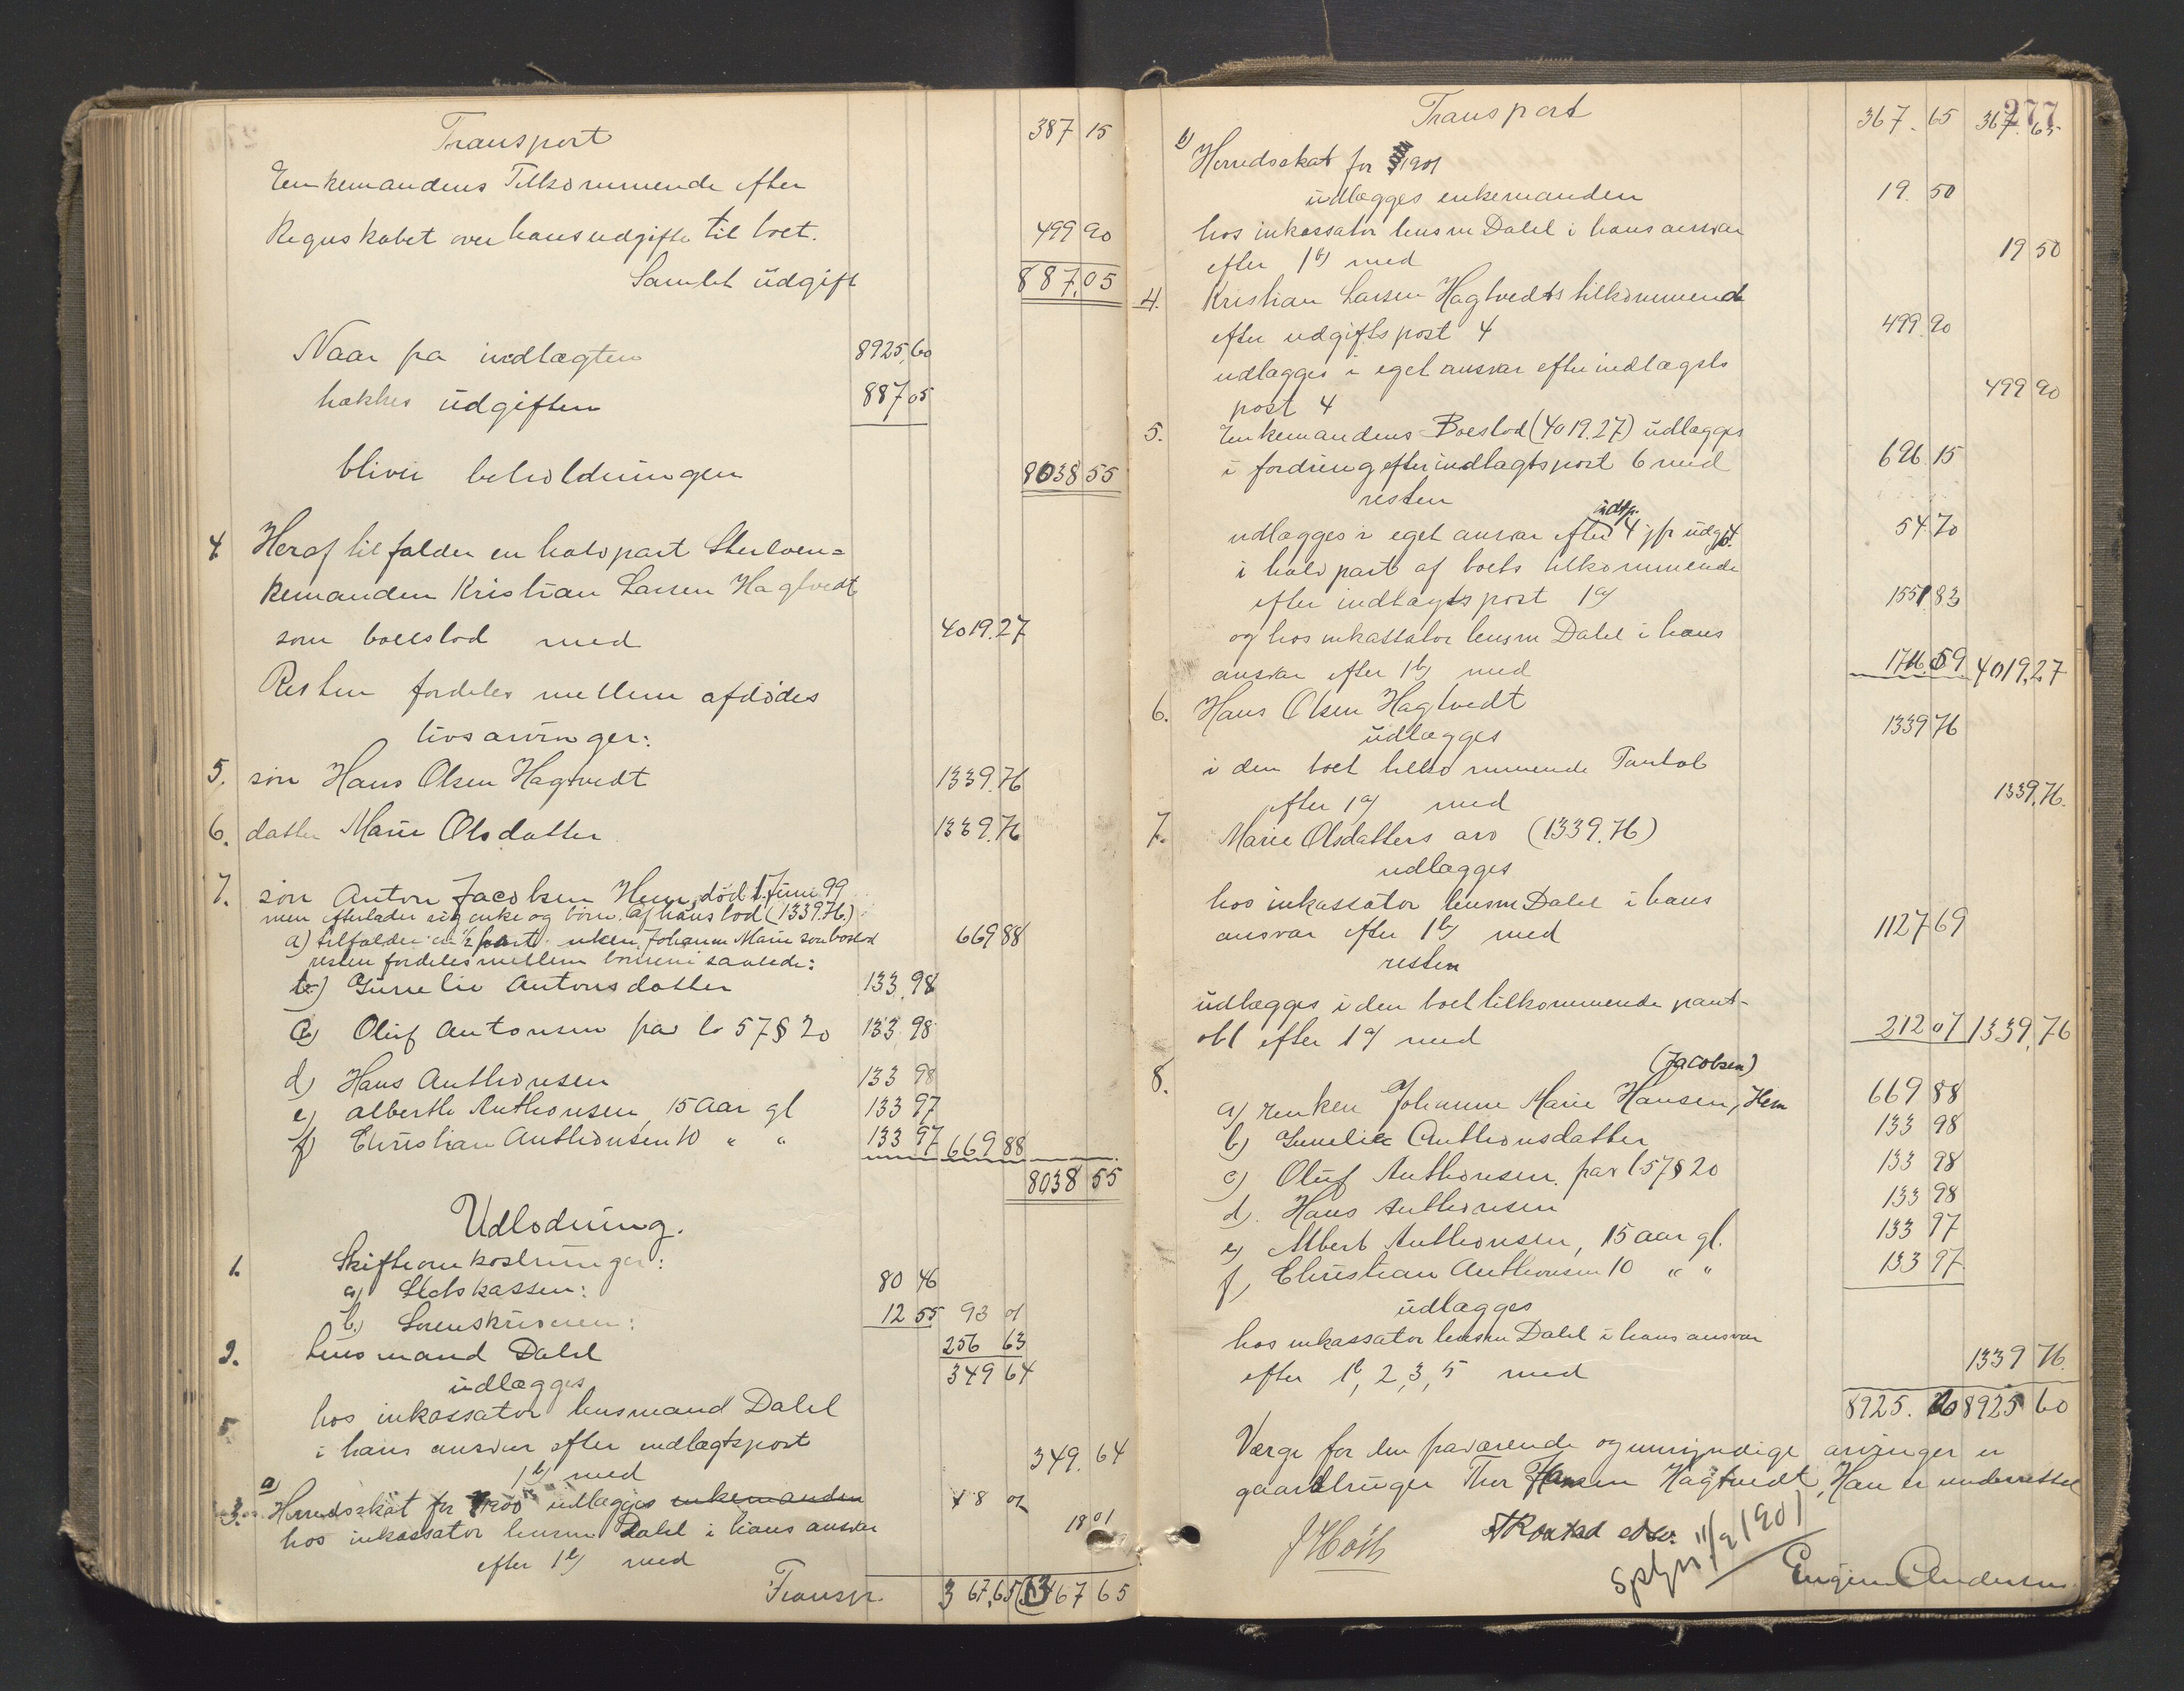 Transport 387 15
Enkemandens Tilkommende efter
Regnskabet over hans udgifter til boet. 499 90
Samlet udgift 887,05
Naar fra indtægten 8925,60
trækkes udgiften 887 05
bliver beholdningen 8038 55
4. Heraf tilfalder en halvpart Sterboen=
kemanden Kristian Larsen Hagtvedt
som boeslod med 4019.27
Resten fordeles mellem afdødes
livsarvinger:
5. søn Hans Olsen Hagtvedt 1339.76
6. datter Marie Olsdatter 1339.76
7. søn Anton Jacobsen Hem, død 1. Juni 99
men efterlader sig enke og børn. Af hans lod (1339.76)
a) tilfalder en 1/2 part enken Johanne Marie som boslod 669 88
resten fordeles mellem børnene saaledes:
b) Gunelie Antonsdatter 133,98
c) Oluf Antonsen fav l. 57 § 20 133.98
d) Hans Anthonsen 133 98
e) Alberth Anthonsen, 15 Aar gl 133 97
f) Christian Anthonsen 10 " " 133 97 669 88
8038 55
Udlodning.
1. Skifteomkostninger:
a) Statskassen: 80 46
b.) Sorenskriveren: 12 55 93 01
2. Lensmand Dahl 256 63
udlægges 349 64
hos inkassator lensmand Dahl
i hans ansvar efter indtægtspost
1 b) med 349. 64
3. a) Herredsskat for 1900 udlægges enkemanden 18 01
hos inkassator lensm Dahl i hans ansvar
efter 1 b) med 18 01
Transp. 367,65 367 65
277
Transport 367. 65 367. 65
b) Herredsskat for 1901 19. 50
udlægges enkemanden
hos inkassator lensm Dahl i hans ansvar
efter 1 b) med 19 50
4. Kristian Larsen Hagtvedts tilkommende
efter udgiftspost 4 499 90
udlægges i eget ansvar efter indtægts
post 4 499 90
5. Enkemandens Boeslod (4019.27) udlægges
i fordring efter indtægtspost 6 med 696 15
resten
udlægges i eget ansvar efter 4 jfr udg 4. 54 70
i halvpart af boets tilkommende
efter indtægtspost 1 a) 1551 83
og hos inkassator lensm Dahl i hans
ansvar efter 1 b) med 1716 59 4019,27
6. Hans Olsen Hagtvedt 1339 76
udlægges
i den boet tilkommende Pantob
efter 1 a) med 1339,76.
7. Marie Olsdatters arv (1339.76)
udlægges
hos inkassator lensm Dahl i hans
ansvar efter 1 b) med 1127 69
resten
udlægges i den boet tilkommende pant-
obl efter 1 a) med 212 07 1339,76
(Jacobsen)
8. a) enken Johanne Marie Hansen, Hem 669 88
b) Gunelie Anthonsdatter 133 98
c) Oluf Anthonsen fav l 57 § 20 133 98
d) Hans Anthonsen 133 98
e) Albert Anthonsen, 15 aar gl. 133 97
f) Christian Anthonsen 10 " " 133 97
udlægges
hos inkassator lensm Dahl i hans ansvar
efter 1 b, 2, 3, 5 med 1339 76.
8925. 60 8925 60
Værge for den fraværende og umyndige arvinger er
gaardbruger Thor Hansen Hagtvedt. Han er underrettet
11/9 1901
Eugen Andersen